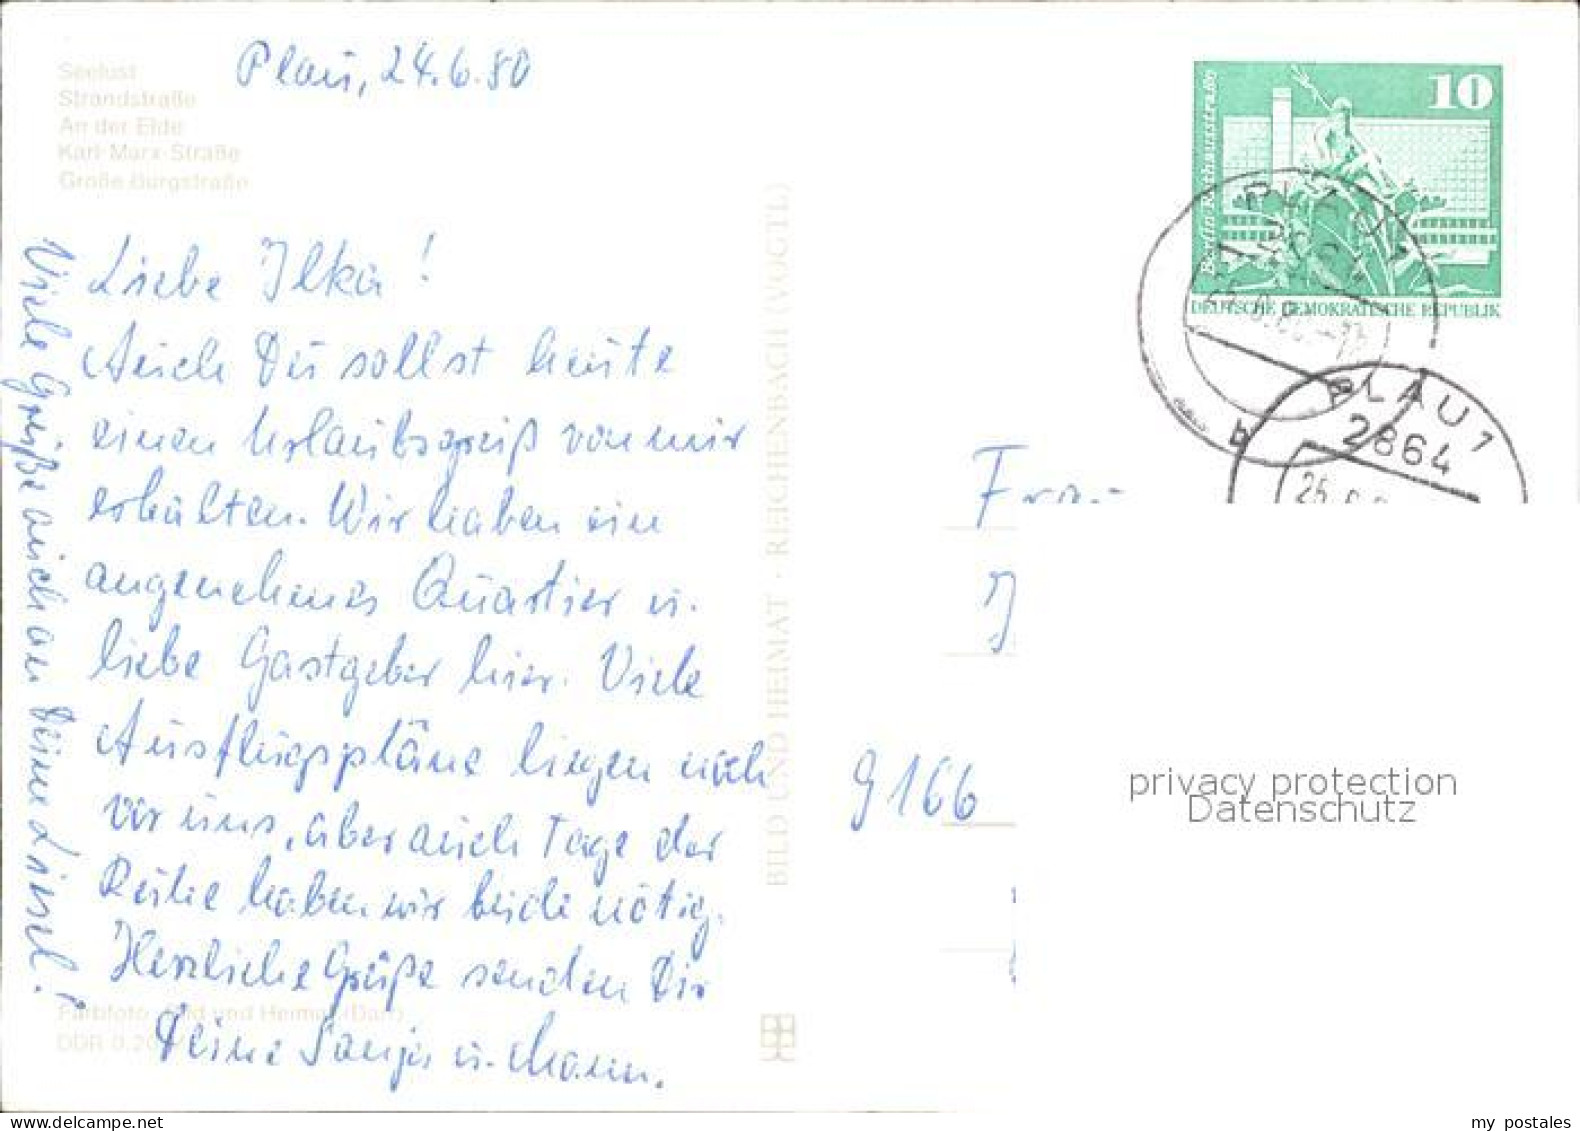 Seelust
Strandstraße
An der Elde
Karl-Marx-Straße
Große Burgstraße
Plau, 24.6.80
Liebe Ilka!
Auch Du sollst heute
einen Urlaubsgruß von mir
erhalten. Wir haben ein
angenehmes Quartier u.
liebe Gastgeber hier. Viele
Ausflugspläne liegen noch
vor uns, aber auch Tage der
Ruhe haben wir beide nötig.
Herzliche Grüße senden Dir
Deine Sanja u. Mann.
Viele Grüße auch an Deine Insel!
Farbfoto: Bild und Heimat (Darr)
DDR 0,20
BILD UND HEIMAT · REICHENBACH (VOGTL)
10
Berlin, Rathausstraße
DEUTSCHE DEMOKRATISCHE REPUBLIK
PLAU 1
b
PLAU 1
2864
Frau
9166
privacy protection
Datenschutz
my postales